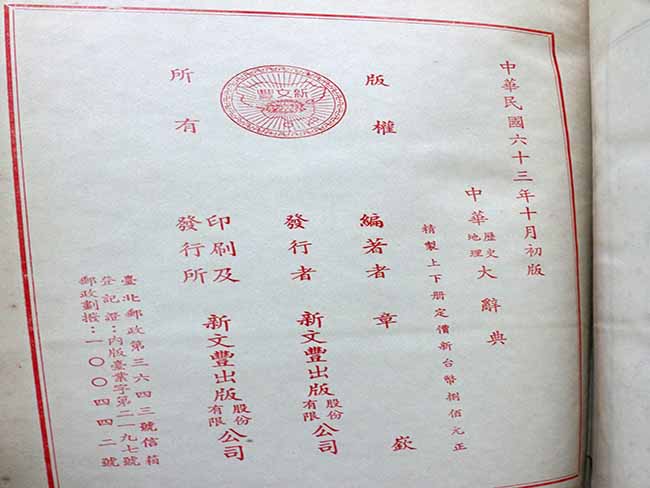 中華民國六十三年十月初版
中華歷史地理大辭典
精製上下册定價新台幣捌佰元正
版權所有
新文豐
編著者 章 嶔
發行者 新文豐出版股份有限公司
印刷及發行所 新文豐出版股份有限公司
臺北郵政第三六四三號信箱
登記證：內版臺業字第二一九七號
郵政劃撥：一〇〇四四二號